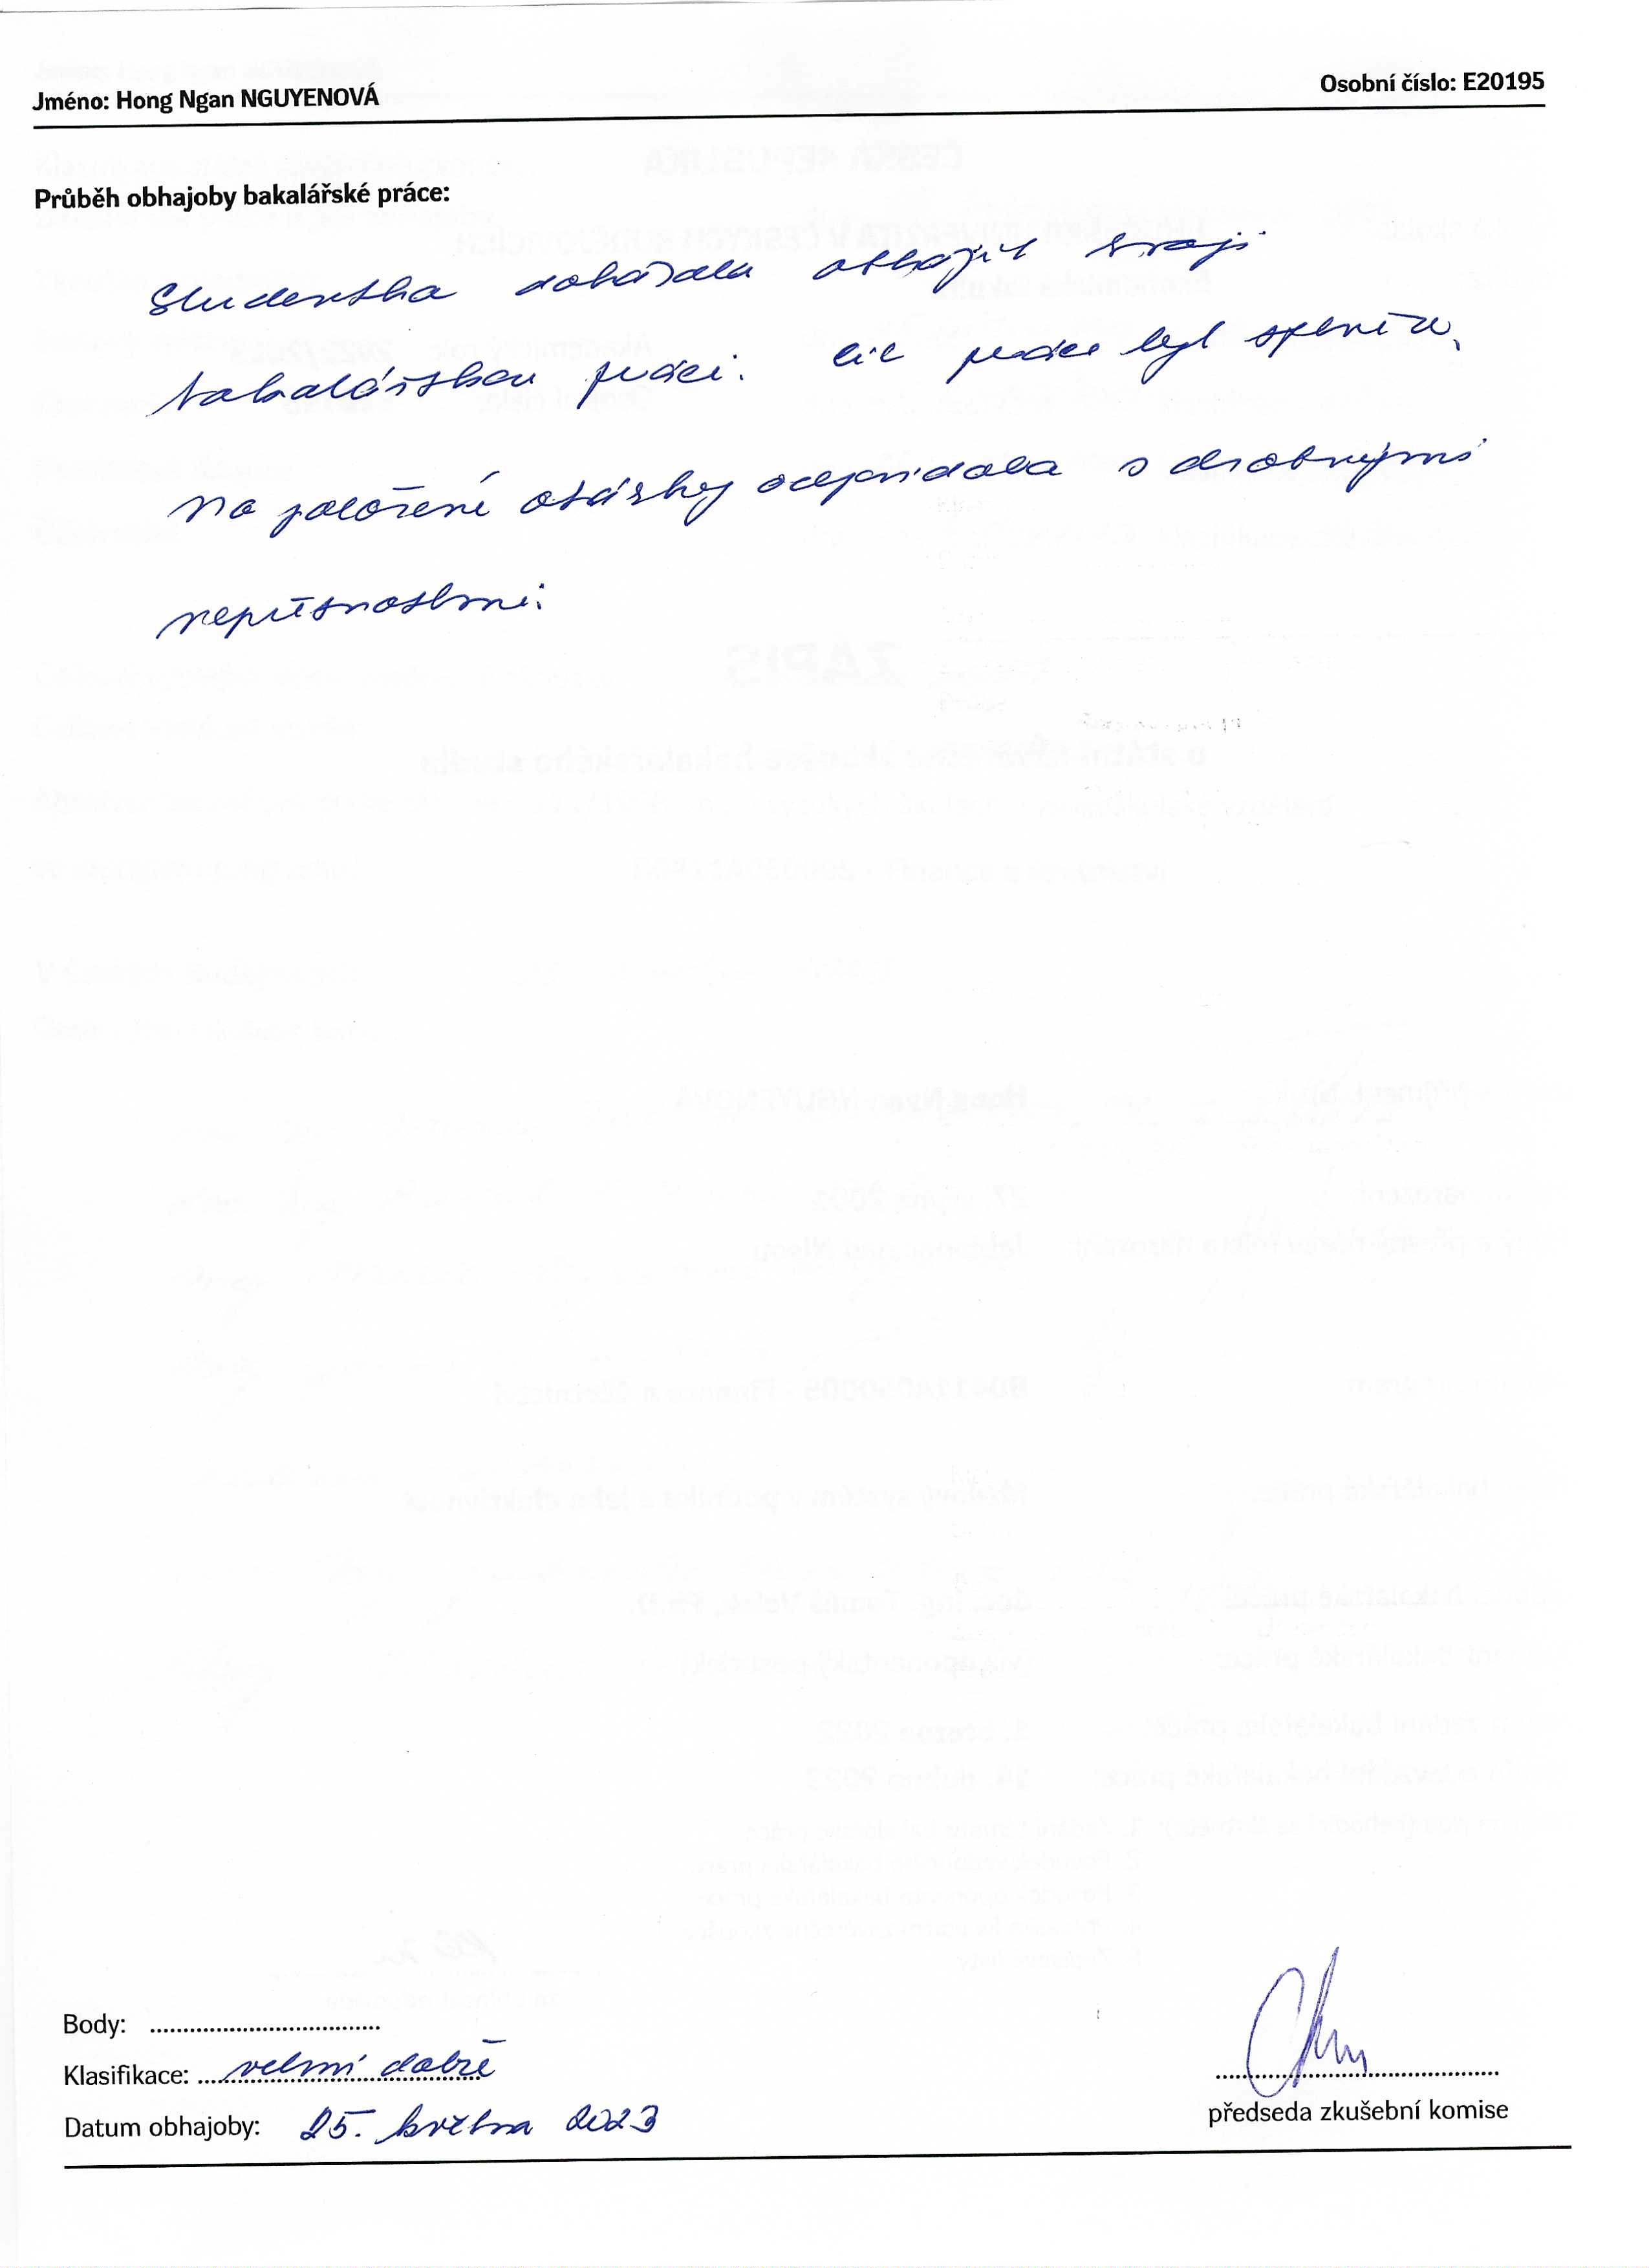 Jméno: Hong Ngan NGUYENOVÁ
Osobní číslo: E20195
Průběh obhajoby bakalářské práce:
Studentka dokázala obhájit svoji
bakalářskou práci. Cíl práce byl splněn.
Na položené otázky odpovídala s drobnými
nepřesnostmi.
Body: ..................................
Klasifikace: velmi dobře
Datum obhajoby: 25. května 2023
předseda zkušební komise